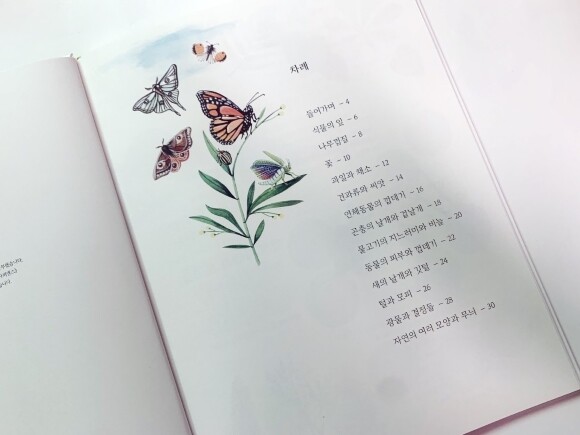 차례
들어가며 - 4
식물의 잎 - 6
나무껍질 - 8
꽃 - 10
과일과 채소 - 12
견과류와 씨앗 - 14
연체동물의 껍데기 - 16
곤충의 날개와 겉날개 - 18
물고기의 지느러미와 비늘 - 20
동물의 피부와 껍데기 - 22
새의 날개와 깃털 - 24
털과 모피 - 26
광물과 결정들 - 28
자연의 여러 모양과 무늬 - 30